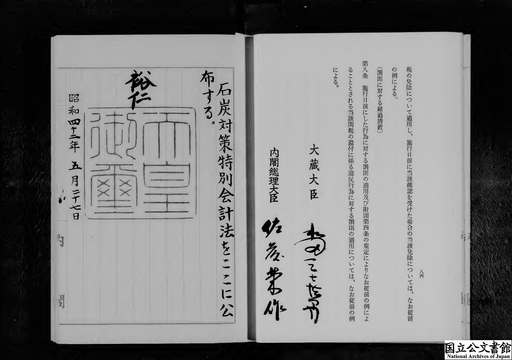 税の免除について適用し、施行日前に当該確認を受けた場合の当該免除については、なお従前
の例による。
(罰則に対する経過措置)
第八条 施行日前にした行為に対する罰則の適用及び附則第四条の規定によりなお従前の例によ
ることとされる当該関税の還付に係る違反行為に対する罰則の適用については、なお従前の例
による。
八四
大蔵大臣
内閣総理大臣 佐藤榮作
石炭対策特別会計法をここに公
布する。
裕仁
天皇
御璽
昭和四十二年五月二十七日
内閣
国立公文書館
National Archives of Japan